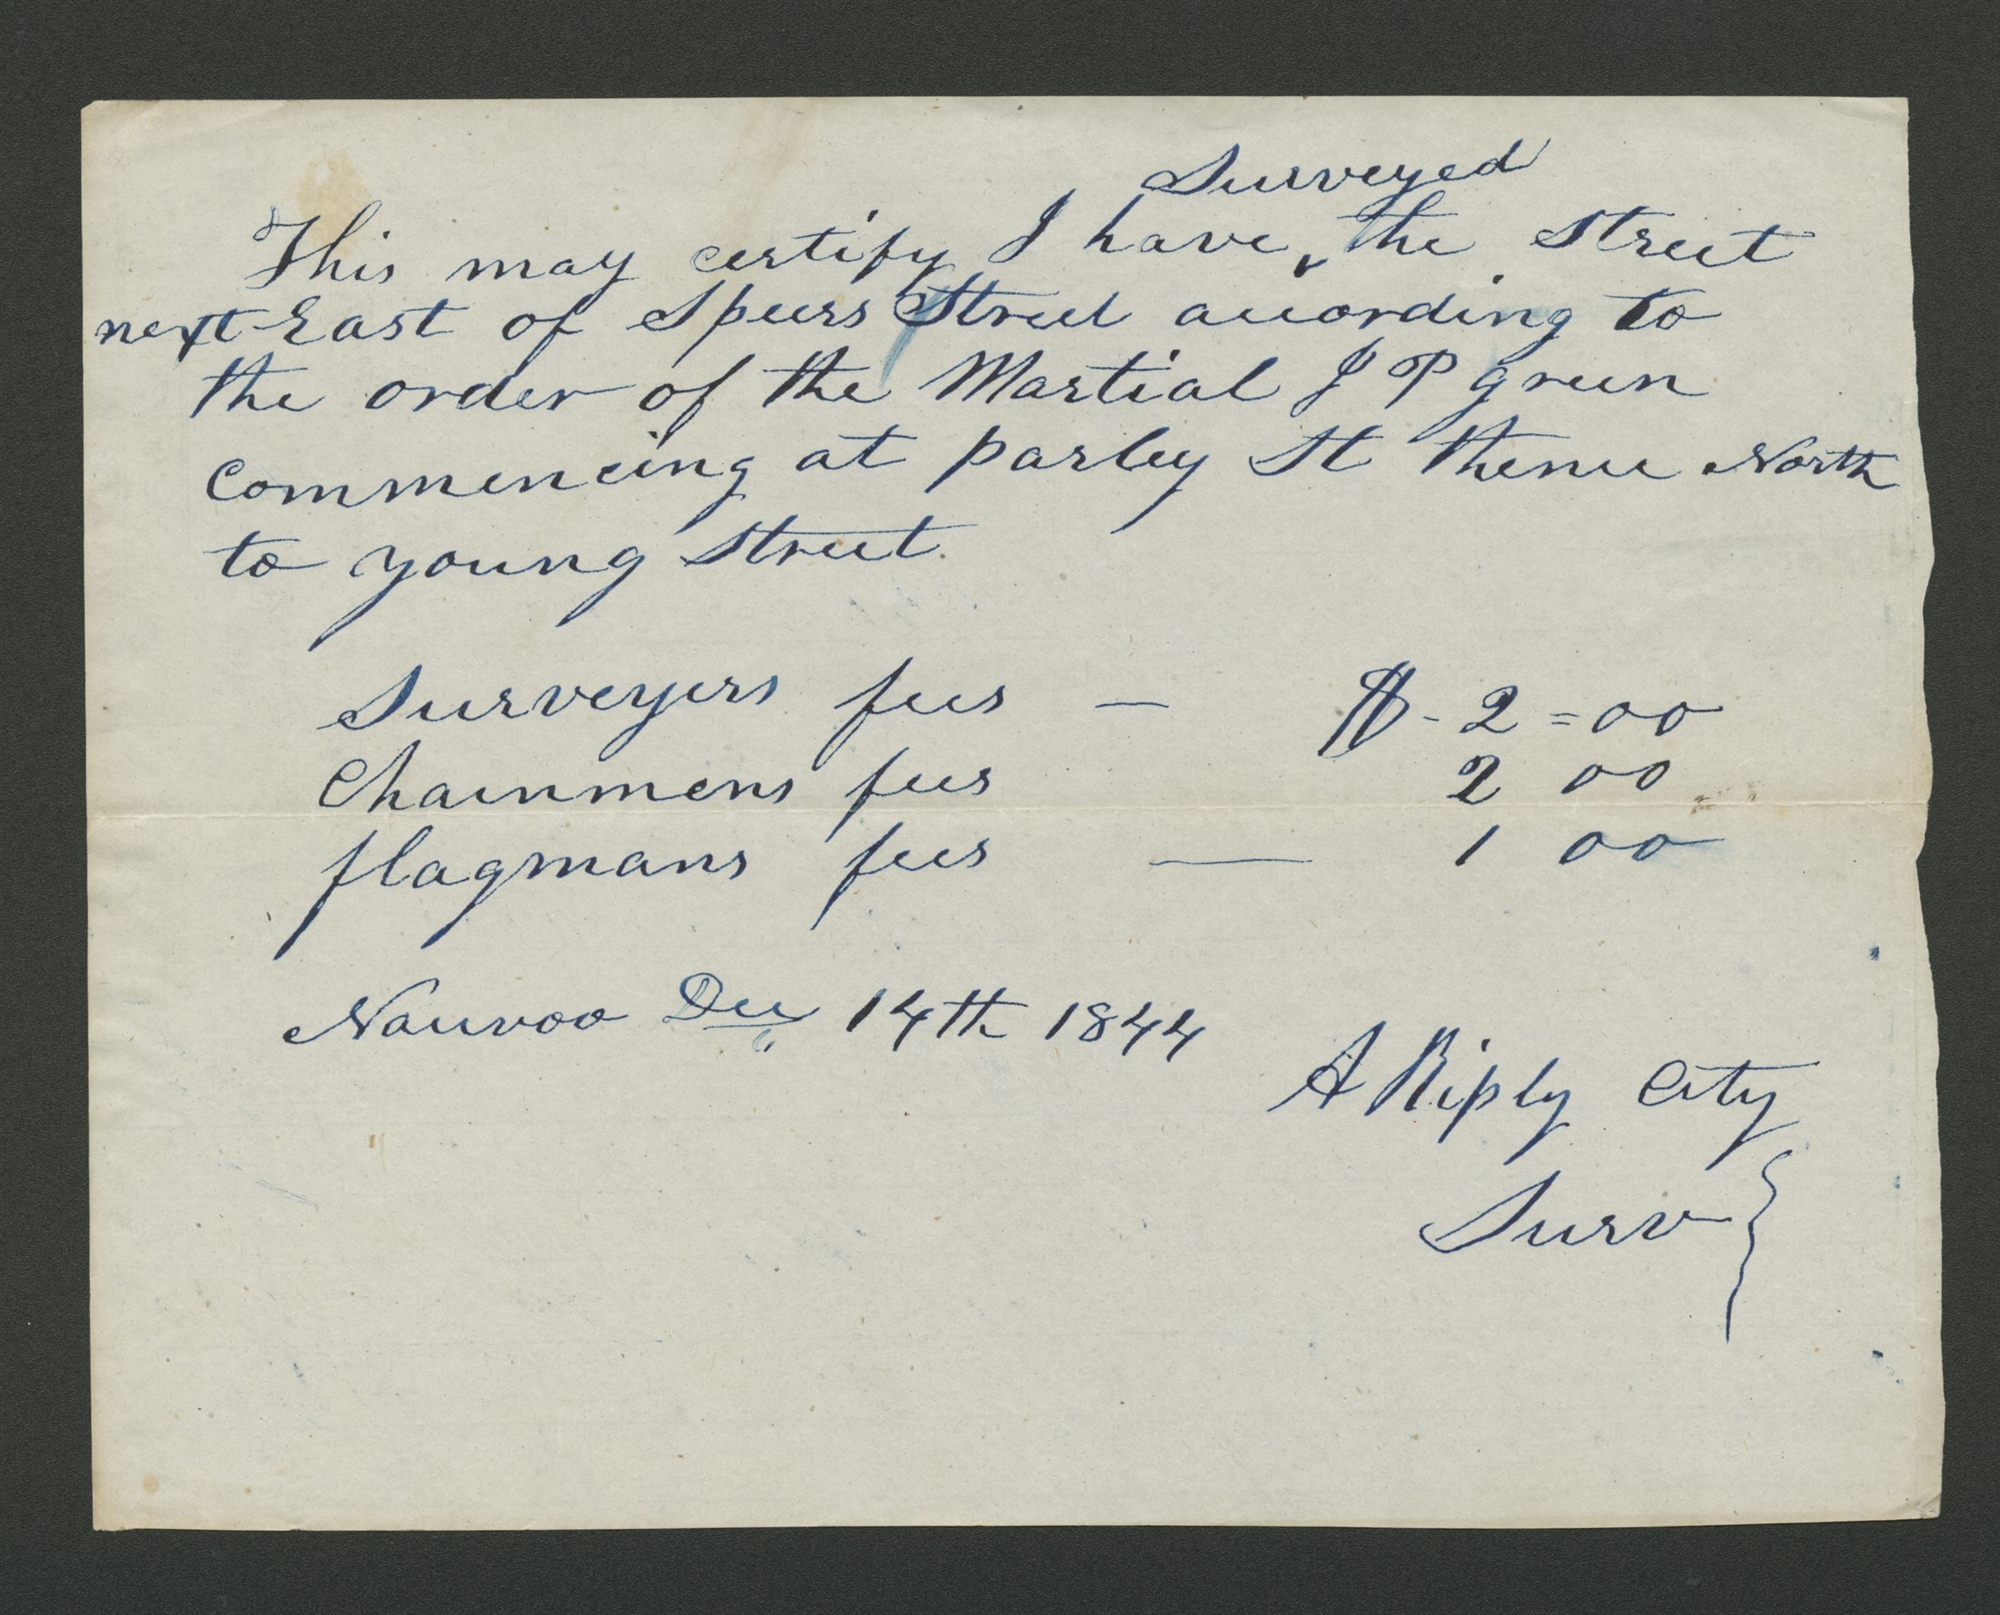 Surveyed
This may certify I have ‸ the Street
next East of Speers Street according to
the order of the Martial J P green
Commencing at parley St thence North
to young Street.
Surveyers fees — $-2=00
Chainmens fees 2 00
flagmans fees — 1 00
Nauvoo Dec 14th 1844
A Riply City
Surv }